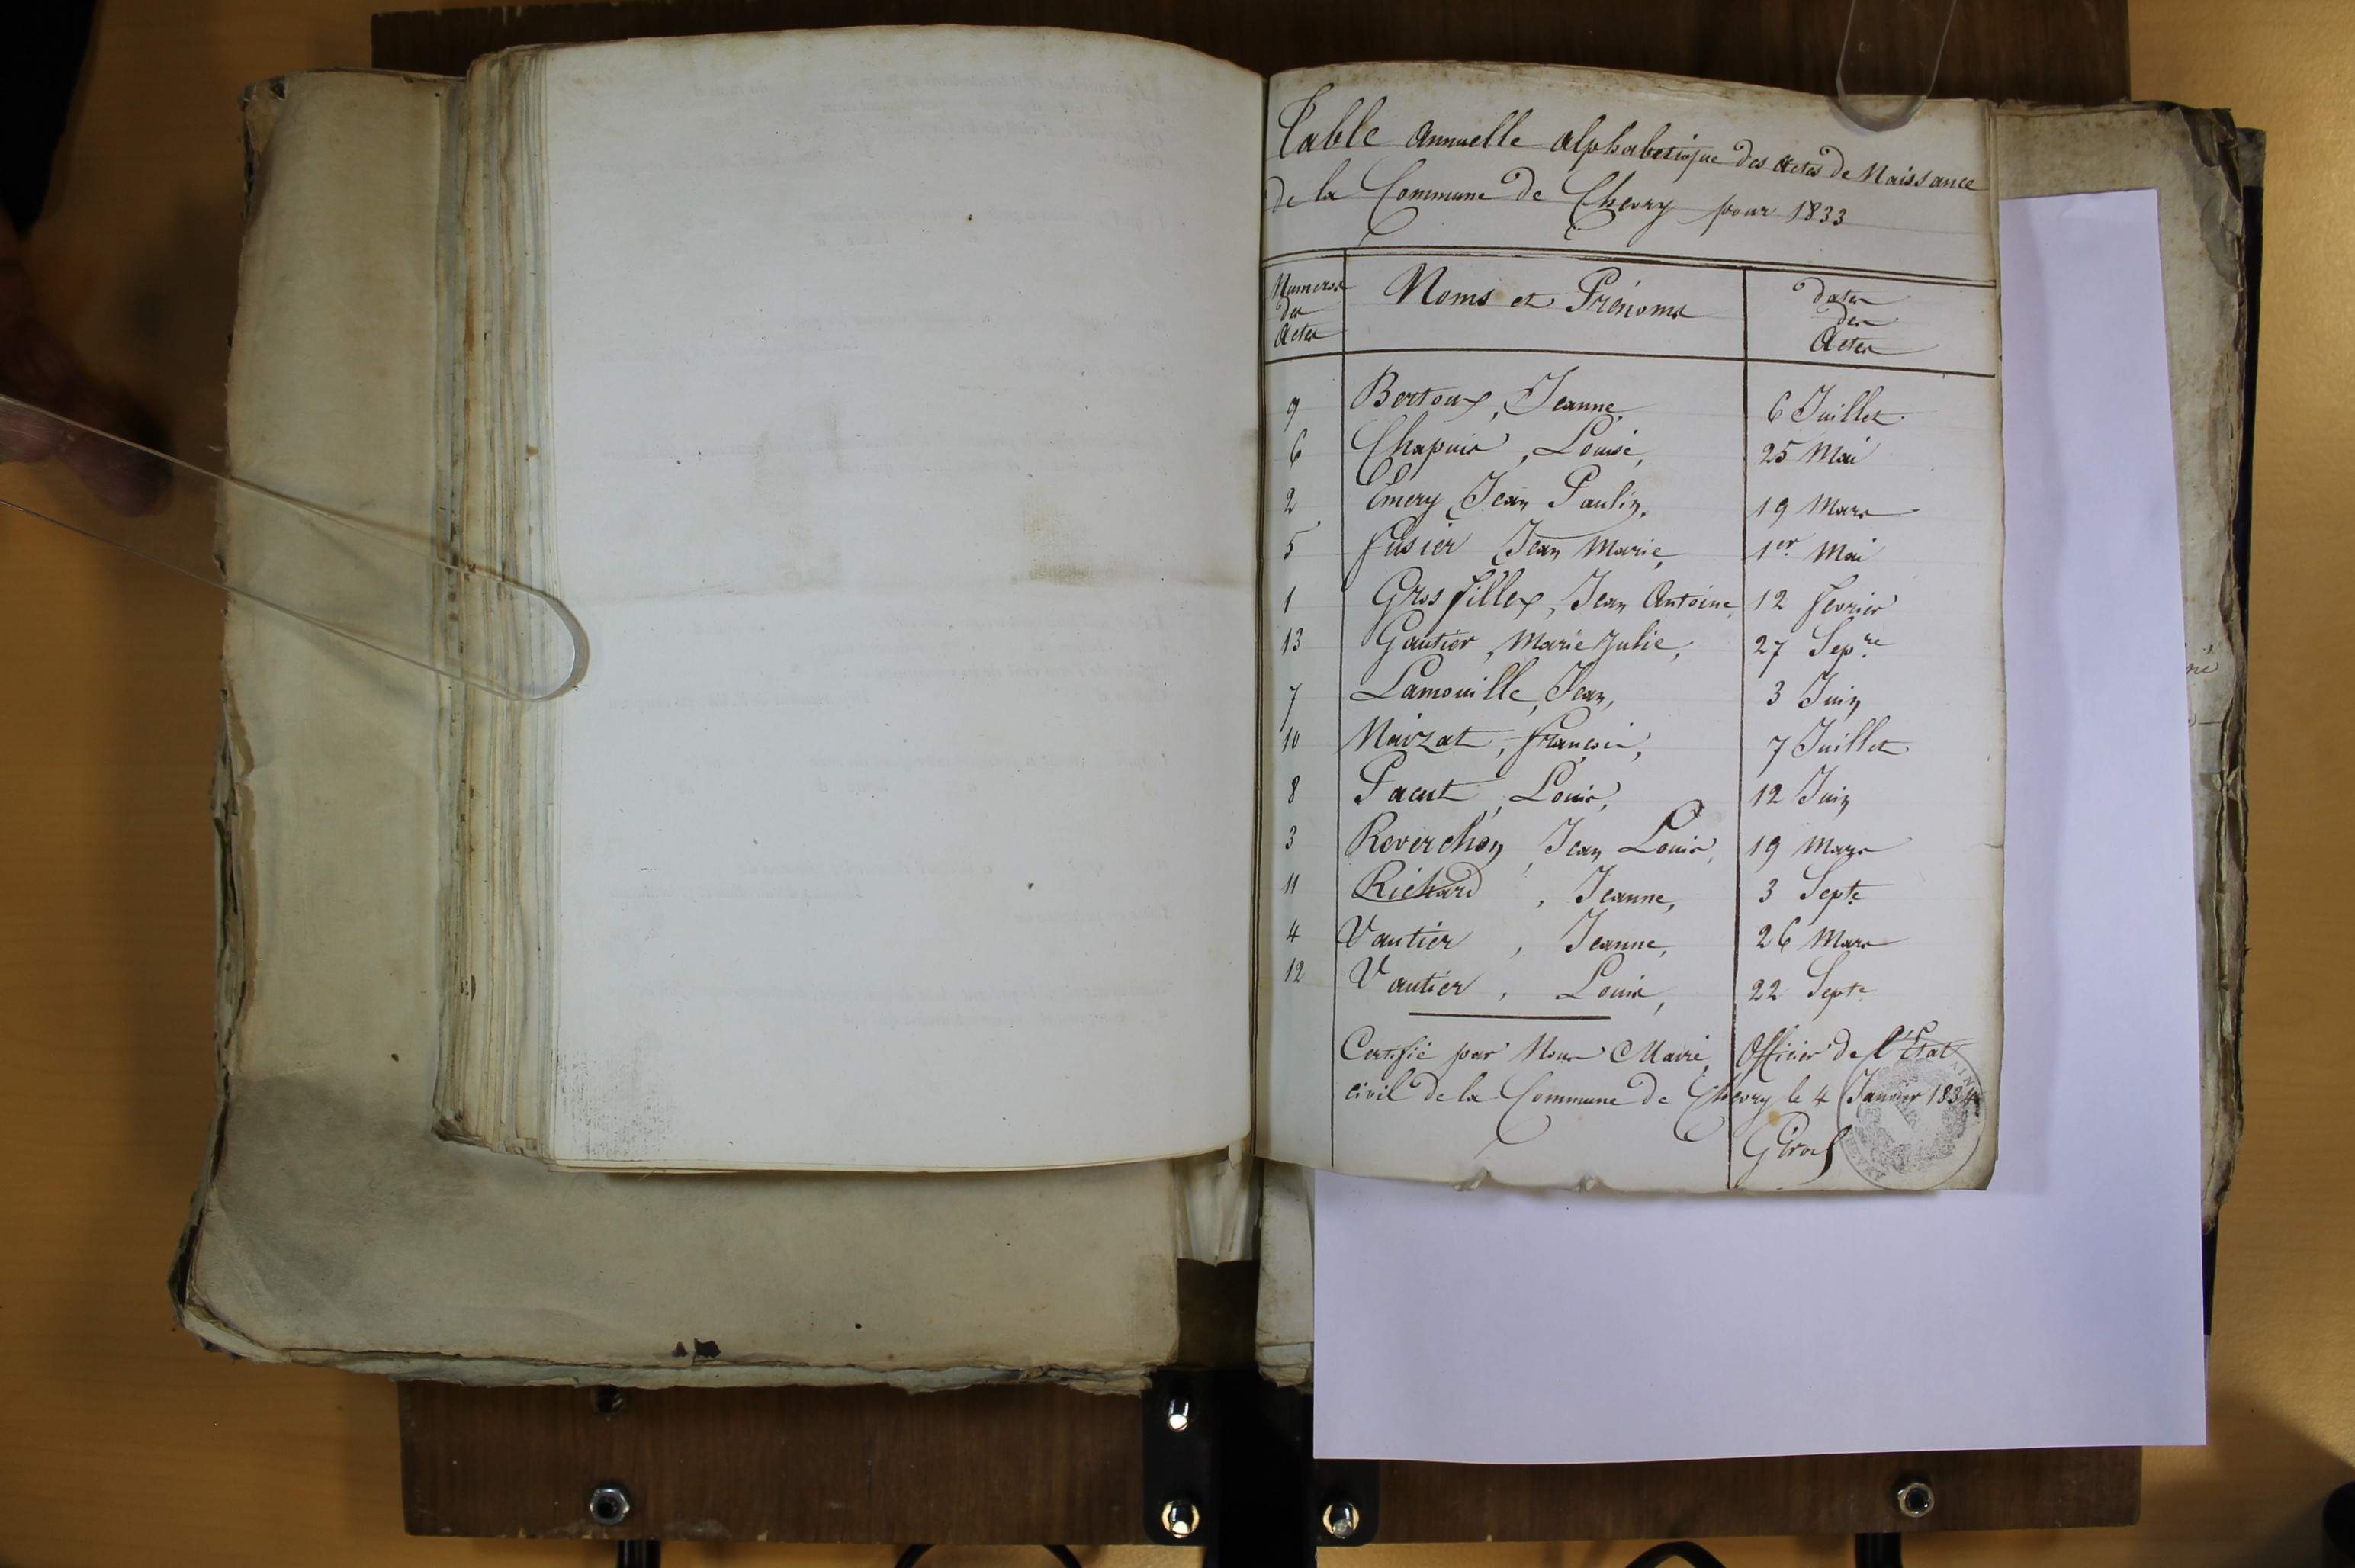 Table Annuelle alphabetique des actes de Naissance
de la Commune de Chevry pour 1833
Numeros des Actes
Noms et Prénoms
dates des Actes
9 Bertoux, Jeanne, 6 Juillet
6 Chapuis, Louise, 25 Mai
2 Emery, Jean Paulin, 19 Mars
5 fusier Jean Marie, 1er Mai
1 Grosfillex, Jean Antoine, 12 fevrier
13 Gautier, Marie Julie, 27 Sepre
7 Lamouille, Jean, 3 Juin
10 Maizat, françois, 7 Juillet
8 Pacut, Louis, 12 Juin
3 Reverchon, Jean Louis, 19 Mars
11 Richard, Jeanne, 3 Septe
4 Vautier, Jeanne, 26 Mars
12 Vautier, Louis, 22 Septe
Certifié par Nous Maire, Officier de l'Etat
civil de la Commune de Chevry le 4 Janvier 1834
Girod